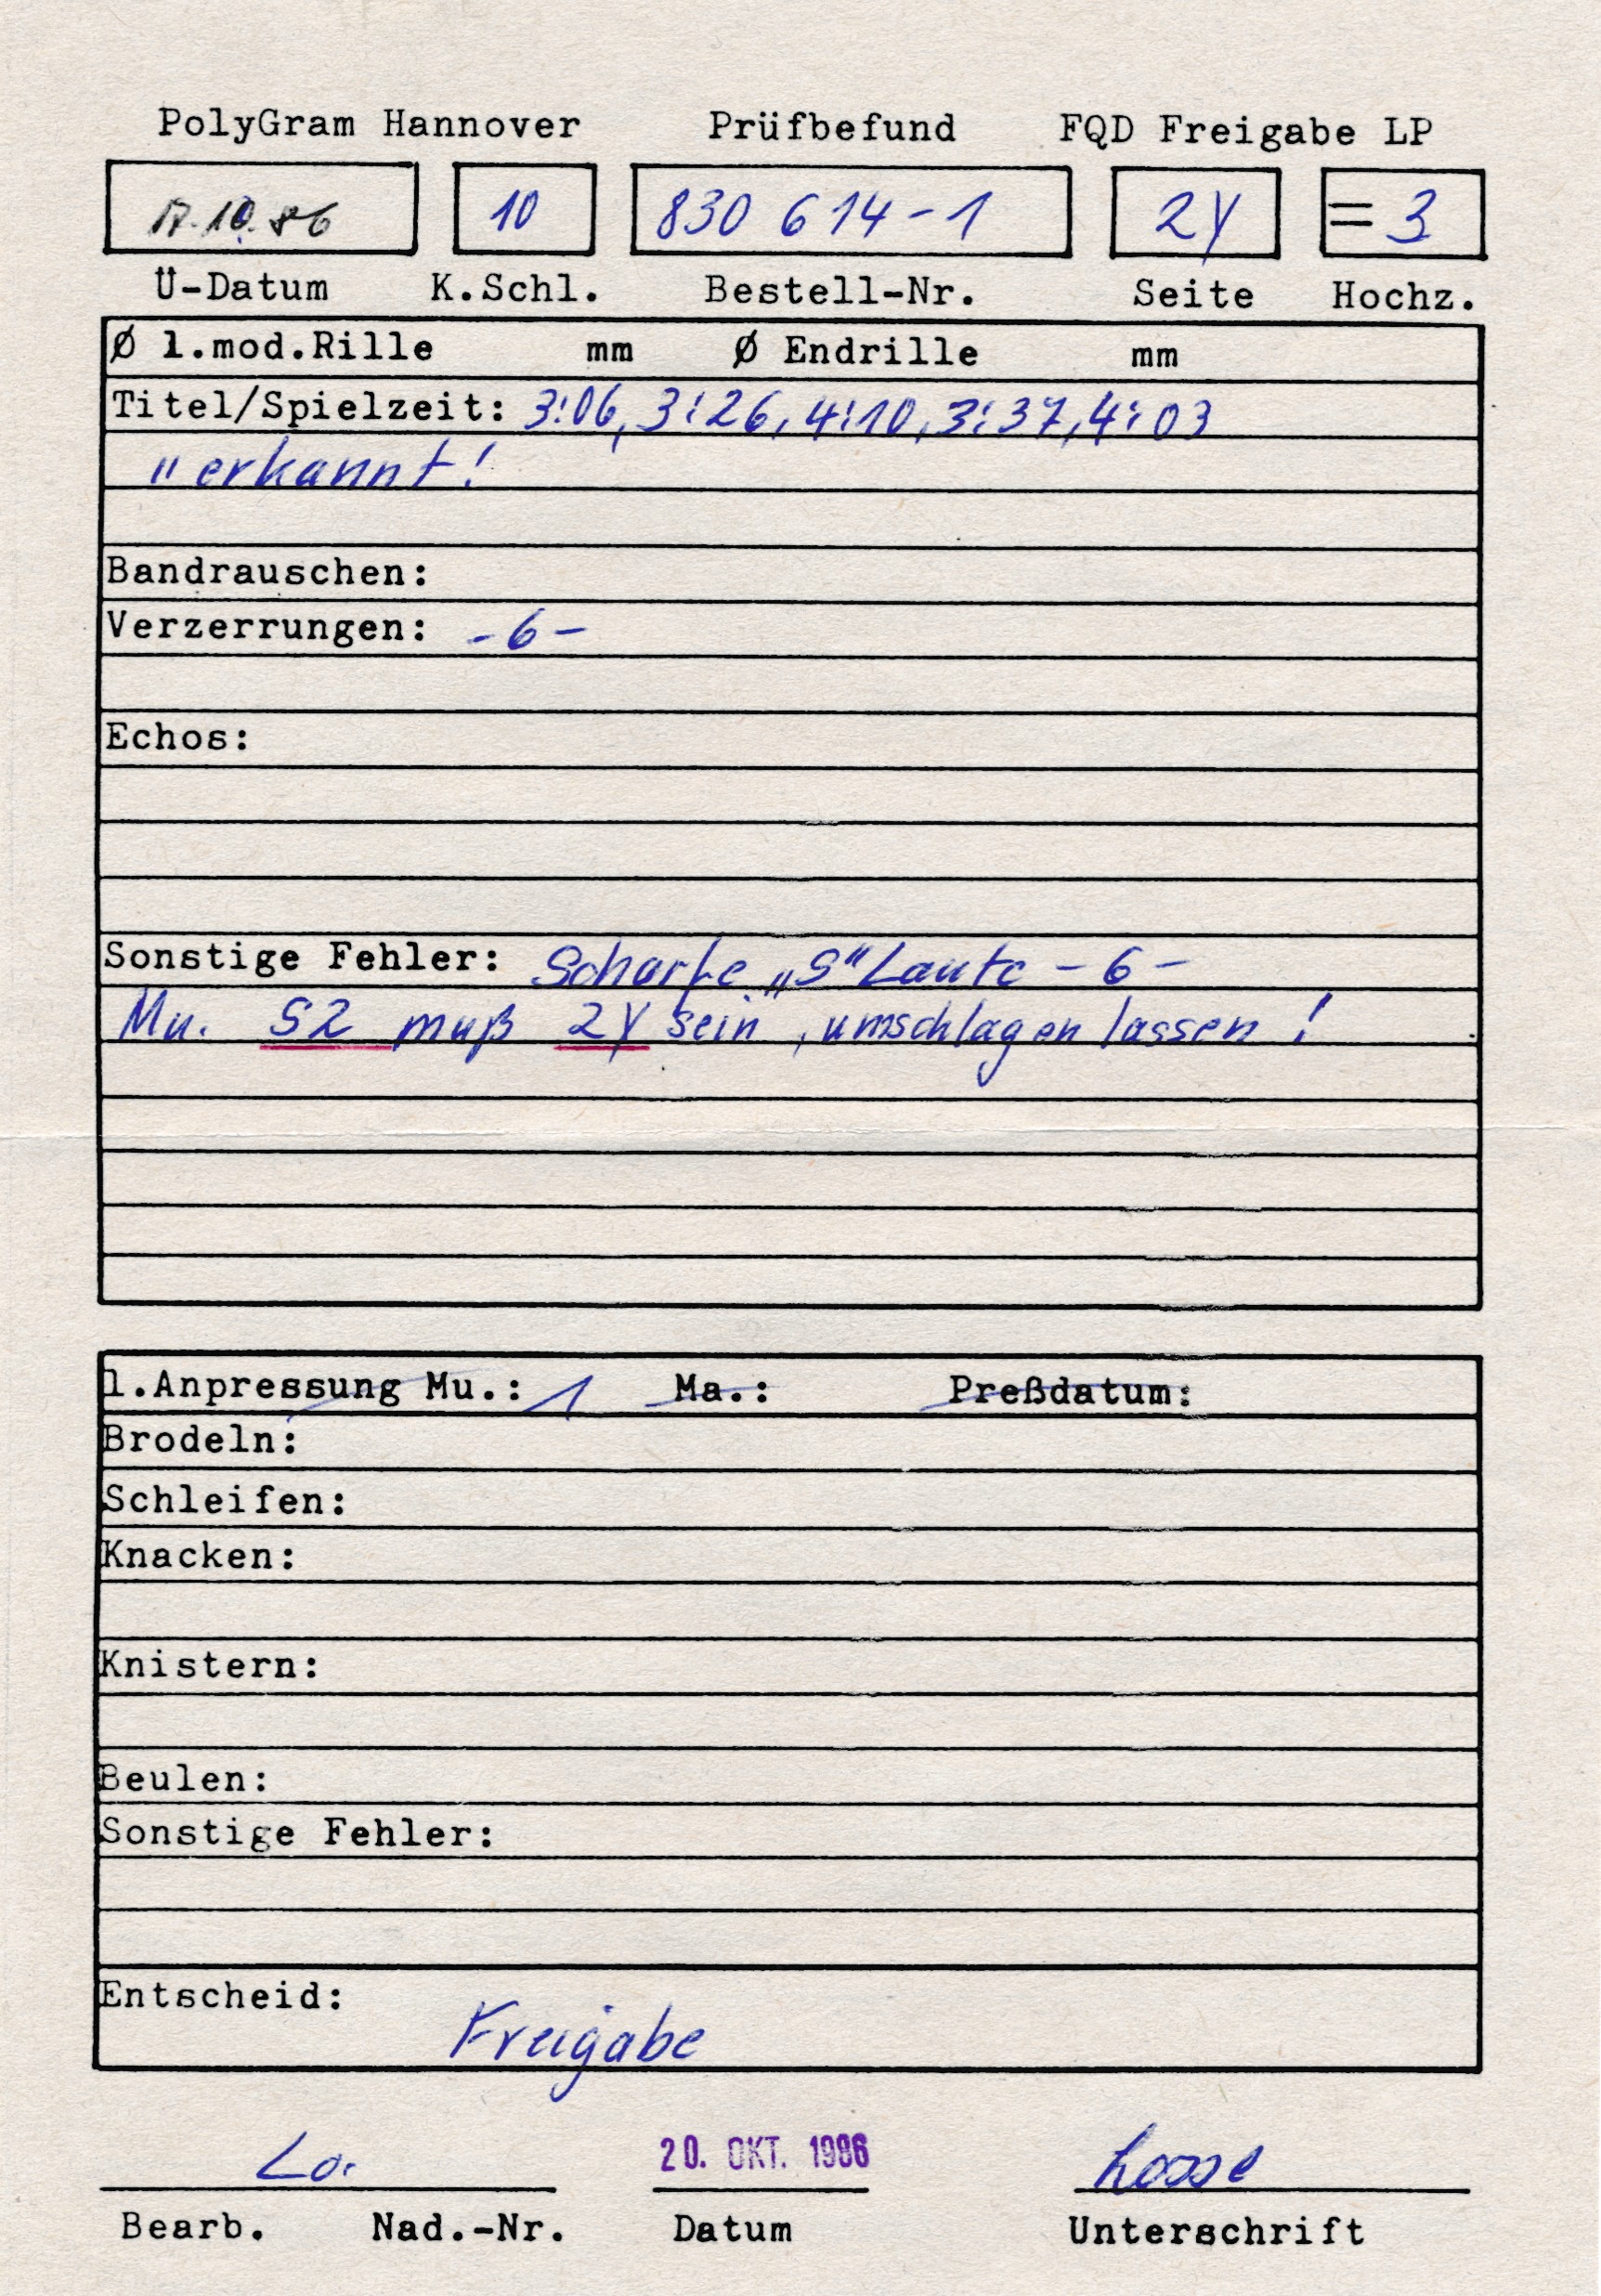 PolyGram Hannover Prüfbefund FQD Freigabe LP
17.10.86 10 830 614-1 2Y =3
Ü-Datum K.Schl. Bestell-Nr. Seite Hochz.
Ø 1.mod.Rille mm Ø Endrille mm
Titel/Spielzeit: 3:06, 3:26, 4:10, 3:37, 4:03
" erkannt!
Bandrauschen:
Verzerrungen: -6-
Echos:
Sonstige Fehler: Scharfe „S" Laute -6-
Mu. S2 muß 2Y sein, umschlagen lassen!
1.Anpressung Mu.: 1 Ma.: Preßdatum:
Brodeln:
Schleifen:
Knacken:
Knistern:
Beulen:
Sonstige Fehler:
Entscheid:
Freigabe
Lo. 20. OKT. 1986
Bearb. Nad.-Nr. Datum Unterschrift